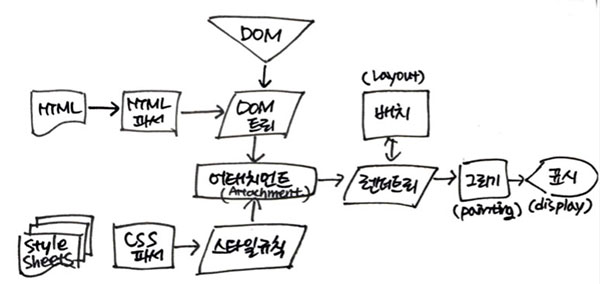 DOM
(layout)
HTML
HTML
파서
DOM
트리
배치
어태치먼트
(Attachment)
렌더트리
그리기
(painting)
표시
(display)
Style
Sheets
CSS
파서
스타일규칙